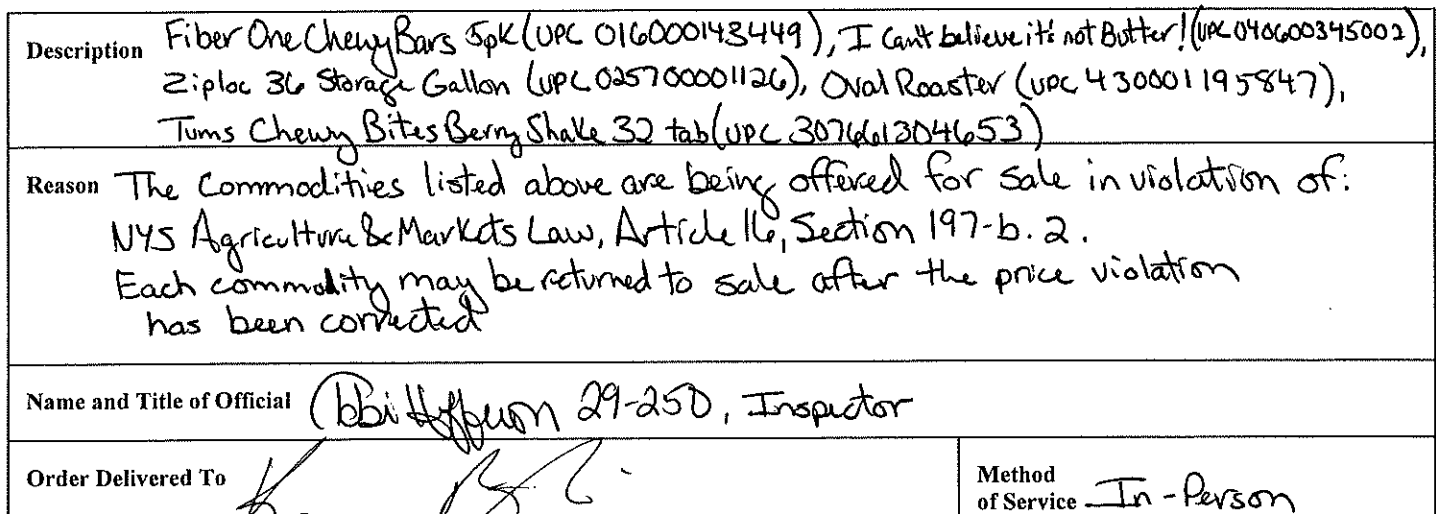 Description Fiber One Chewy Bars 5pk (UPC 016000143449), I Can't believe it's not Butter! (UPC 040600345002),
Ziploc 36 Storage Gallon (UPC 025700001126), Oval Roaster (UPC 430001195847),
Tums Chewy Bites Berry Shake 32 tab (UPC 307661304653)
Reason The Commodities listed above are being offered for sale in violation of:
NYS Agriculture & Markets Law, Article 16, Section 197-b. 2.
Each commodity may be returned to sale after the price violation
has been corrected
Name and Title of Official 29-250, Inspector
Order Delivered To
Method
of Service In-Person